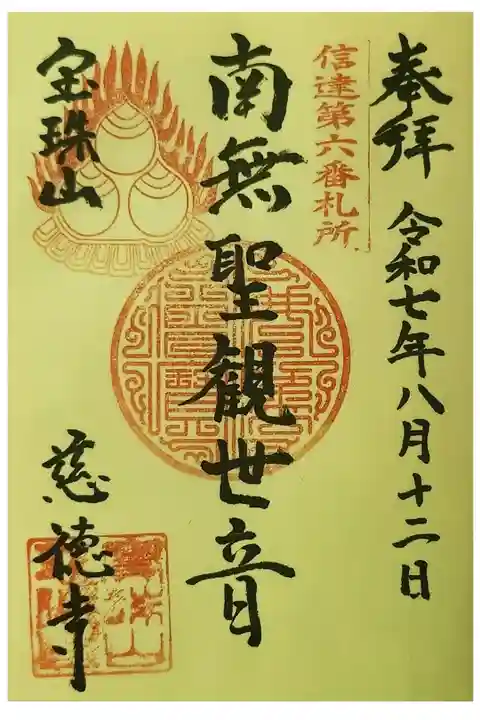 奉拝 令和七年八月十二日
信達第六番札所
南無聖観世音
宝珠山
慈徳寺